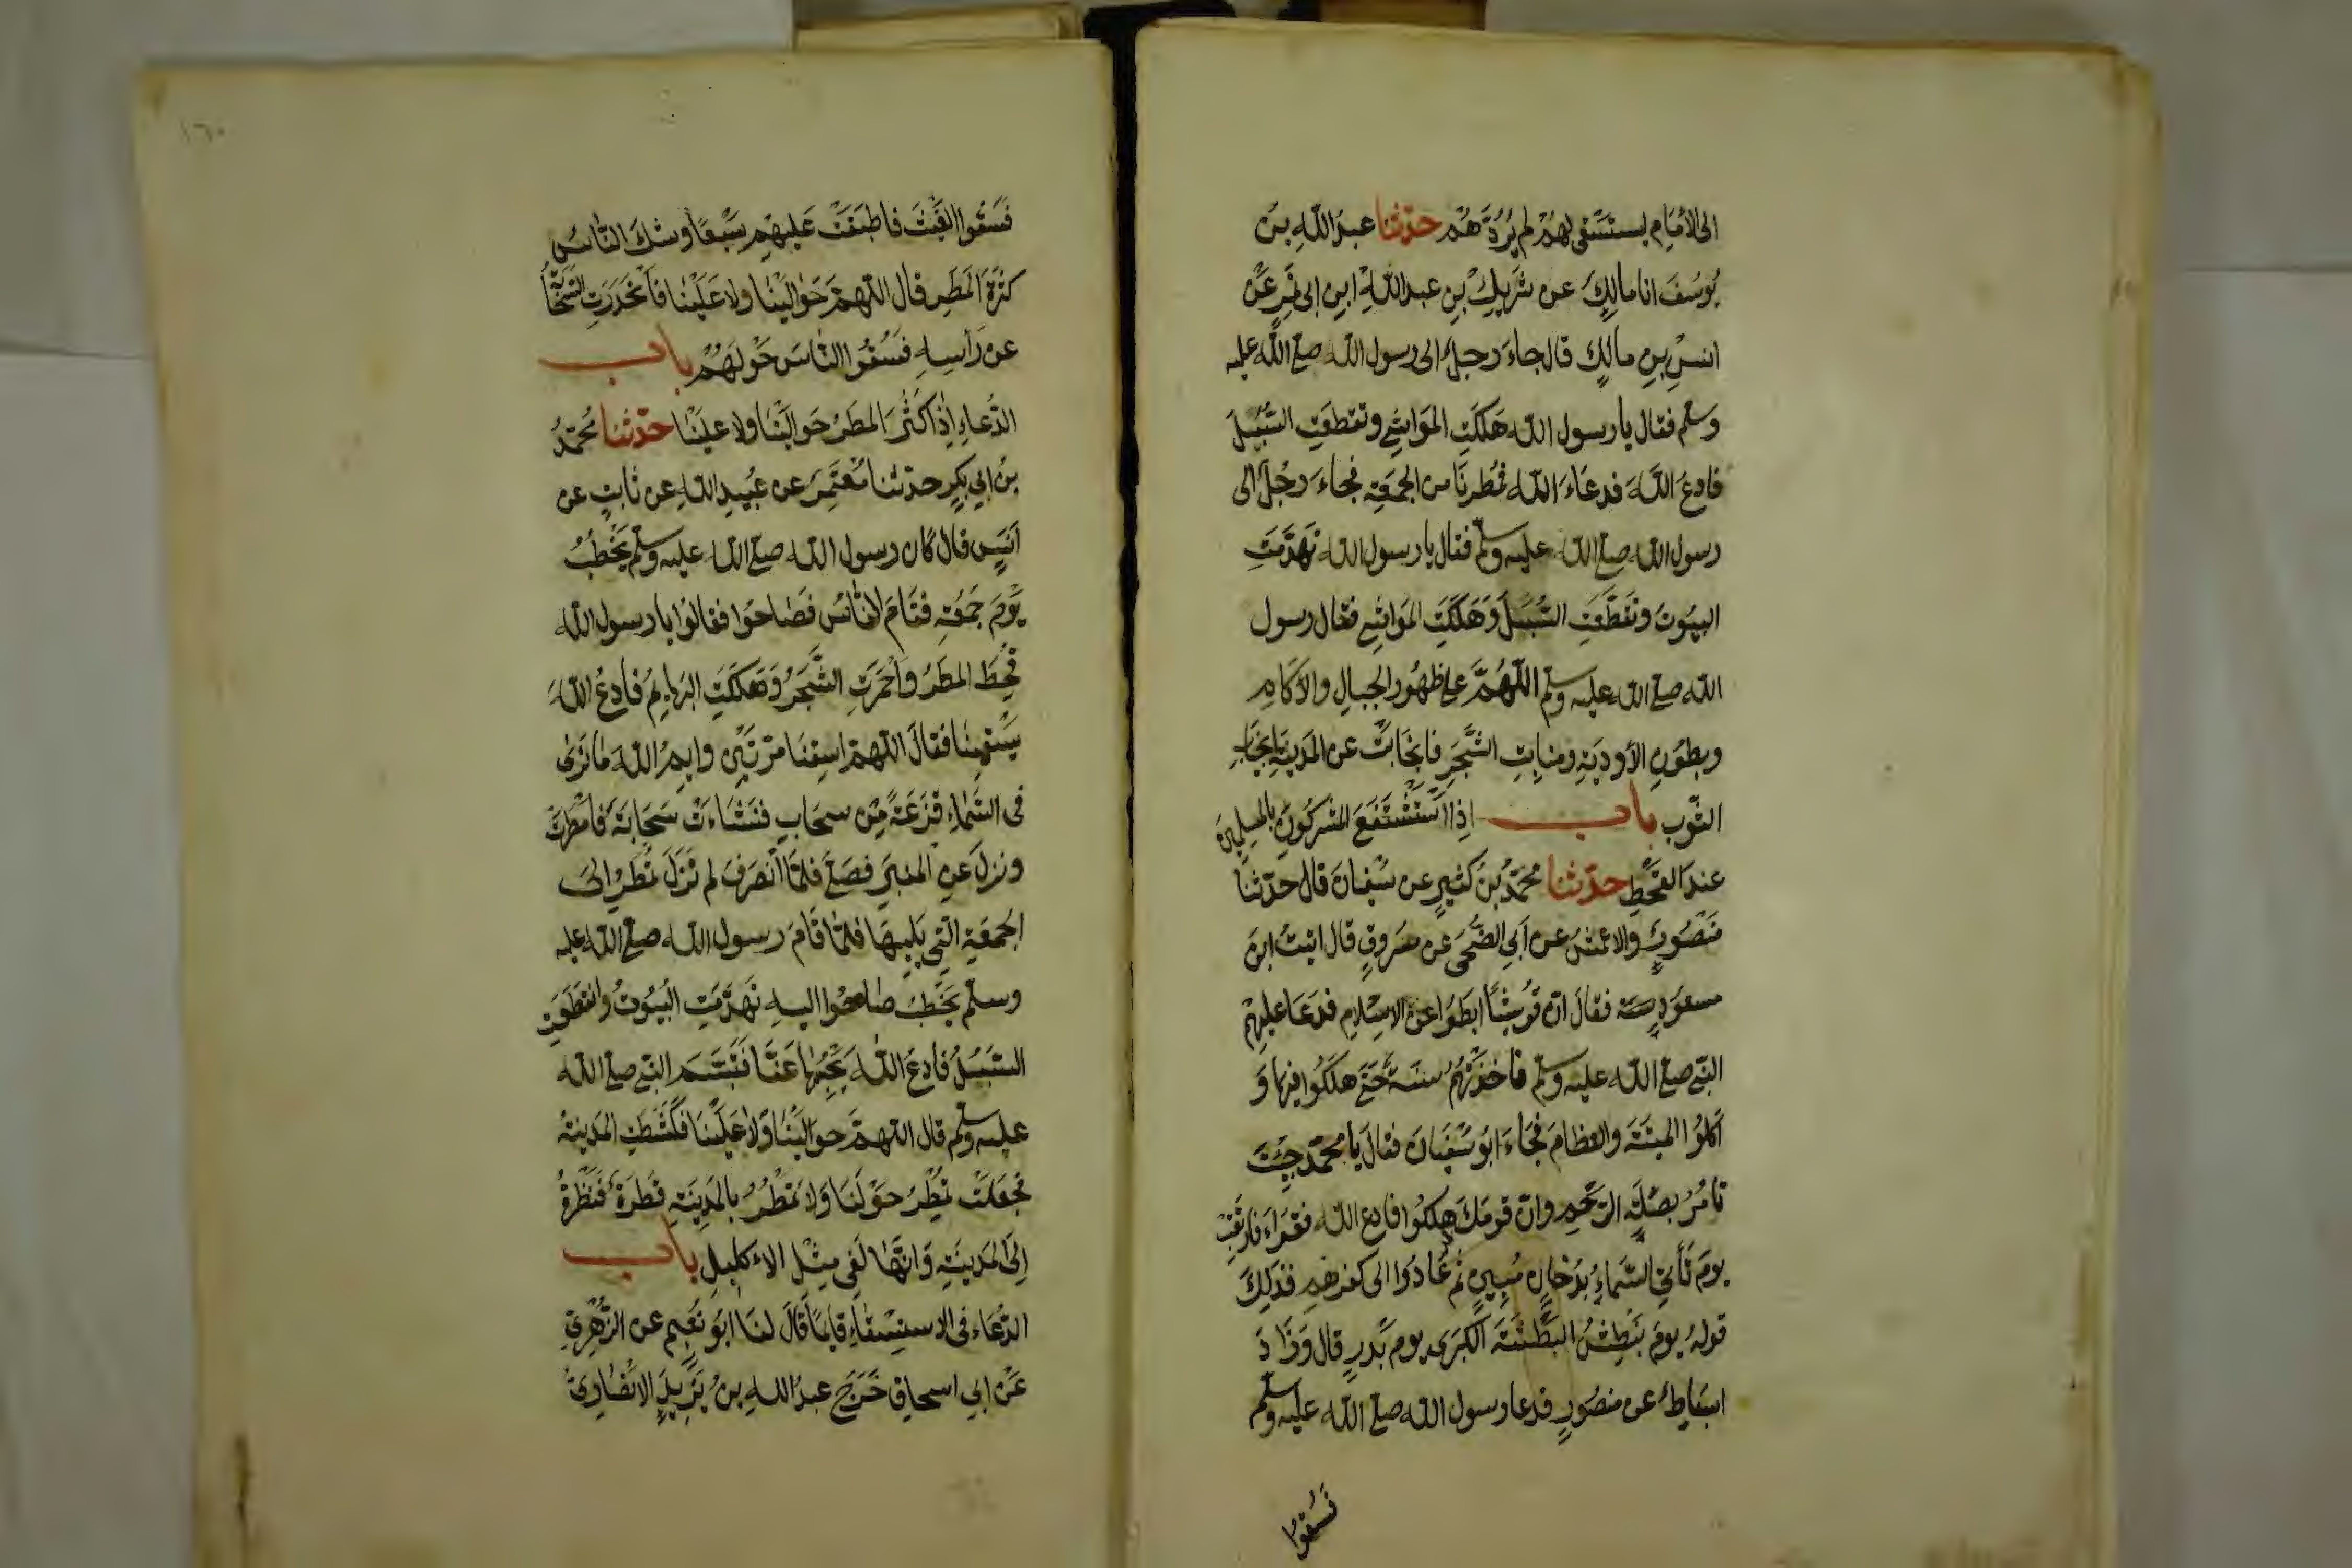 الى الامَامِ ليستَسْقِىَ لهُمْ لم يَرُدَّهُمْ حدّثنا عبدُ اللّهِ بنُ
يُوسُفَ انا مالِكٌ عن شَرِيكِ بْنِ عبد اللهِ ابنِ ابى نَمِرٍ عَنْ
انسِ بنِ مالِكٍ قال جاءَ رجلٌ الى رسول الله صلى الله عليه
وسلم فقال يا رسول الله هَلَكَتِ المَوَاشِي وتقطعَتِ السُّبُلُ
فادعُ اللّهَ فدعَاءَ الله فمُطِرنَا من الجمعَةِ فجاءَ رجُلٌ الى
رسول الله صلى الله عليه وسلم فقال يا رسول الله تَهَدَّمَتِ
البيُوتُ وتَقَطَّعَتِ السُّبُلُ وَهَلَكَتِ المَوَاشِي فقال رسول
الله صلى الله عليه وسلم اللّهُمَّ على ظهُورِ الجبالِ والآكامِ
وبطُونِ الأَودِيَةِ ومنابِتِ الشَّجَرِ فانجَابَتْ عن المَدينَةِ انجيَابَ
الثّوب باب اذا اسْتَشْفَعَ المشركُونَ بالمُسلِمِينَ
عندَ القَحْطِ حدّثنا محمّدُ بْنُ كثِيرٍ عن سُفيان قال حدّثنا
مَنْصُورٌ والاعمَش عن أبى الضُّحَى عن مسرُوقٍ قال اتيتُ ابن
مسعودٍ فقالَ انّ قُرَيشًا ابطَؤُا عن الاسلام فدعَا عليهِمْ
النّبى صلى الله عليه وسلم فاخذَتْهُمْ سنَةٌ حَتّى هلكُوا فيها وَ
اكلُوا الميتَةَ والعظامَ فجَاءَ ابو سُفيَان فقالَ يا محمّدُ جِئتَ
تامُرُ بصلةِ الرّحِم وانّ قومَكَ هلكُوا فادع الله فقرأَ فارتَقِبْ
يومَ تَأتى السّماءُ بدُخانٍ مُبينٍ ثم عادُوا الى كفرهم فذلِكَ
قولهُ يومَ نَبْطِشُ البَطْشَةَ الكُبرَى يومَ بَدرٍ قال وَزَادَ
اسباطٌ عن منصُورٍ فدعا رسول الله صلى الله عليه وسلم
فَسُقوا
١٦٠
فَسُقُوا الغَيْثَ فاطبَقَتْ عَلَيهِمْ سَبْعًا وشكَ النّاسُ
كثرَةَ المَطَرِ قال اللهمّ حَوَالَيْنَا ولا عَلَيْنَا فَانحَدَرَتِ السَّحَابَةُ
عن رَأسِهِ فسُقُوا النّاسَ حَوْلهُمْ باب
الدُّعاءِ اذا كَثُرَ المطرُ حَوالَيْنا ولا علينا حدّثنا مُحمّدُ
بنُ ابى بَكرٍ حدّثنا مُعتَمِرٌ عن عُبَيدِ اللهِ عن ثابتٍ عن
اَنَسٍ قال كان رسول الله صلى الله عليه وسلم يَخْطُبُ
يَوْمَ جمُعَةٍ فقَامَ النّاسُ فصَاحُوا فقالُوا يا رسول الله
قُحِطَ المَطَرُ واحمَرَّتِ الشَّجَرُ وَهلكَتِ البَهايِمُ فادعُ اللهَ
يَسْقينا فقالَ اللهمّ اسقِنا مَرّتَيْنِ وايمُ اللهِ ما نَرى
فى السَّماءِ قَزَعَةً مِن سحَابٍ فنَشاءَتْ سَحَابَةٌ فامطَرَتْ
ونزلَ عن المنبَرِ فصَلّى فلمّا انصَرَفَ لم تَزَلْ تُمطِرُ الى
الجمعَةِ التى تَلِيها فلمّا قامَ رسول الله صلى الله عليه
وسلم يَخْطُبُ صاحُوا اليهِ تَهَدّمَتِ البُيُوتُ وانقطعَتِ
السُّبُلُ فادعُ اللهَ يَحْبِسْها عَنّا فتَبَسَّم النّبى صلى الله
عليه وسلم قال اللهمّ حوالَيْنا ولا عَلَيْنا فكُشِطَتِ المَدينَةُ
فجعَلَتْ تُمطِرُ حوْلَها وَلا تمطُرُ بالمَدينَةِ قطرَةٌ فَنَظَرْتُ
إلَى المَدينَةِ وَانّهَا لَفِى مِثلِ الاكليلِ باب
الدّعَاء فى الاستِسْقاءِ قايمًا قَالَ لنَا ابُو نُعَيمٍ عن الزُّهْرِيّ
عَن ابى اسحاق خَرَجَ عبدُ اللهِ بنُ يَزِيدَ الانصَارِىُّ